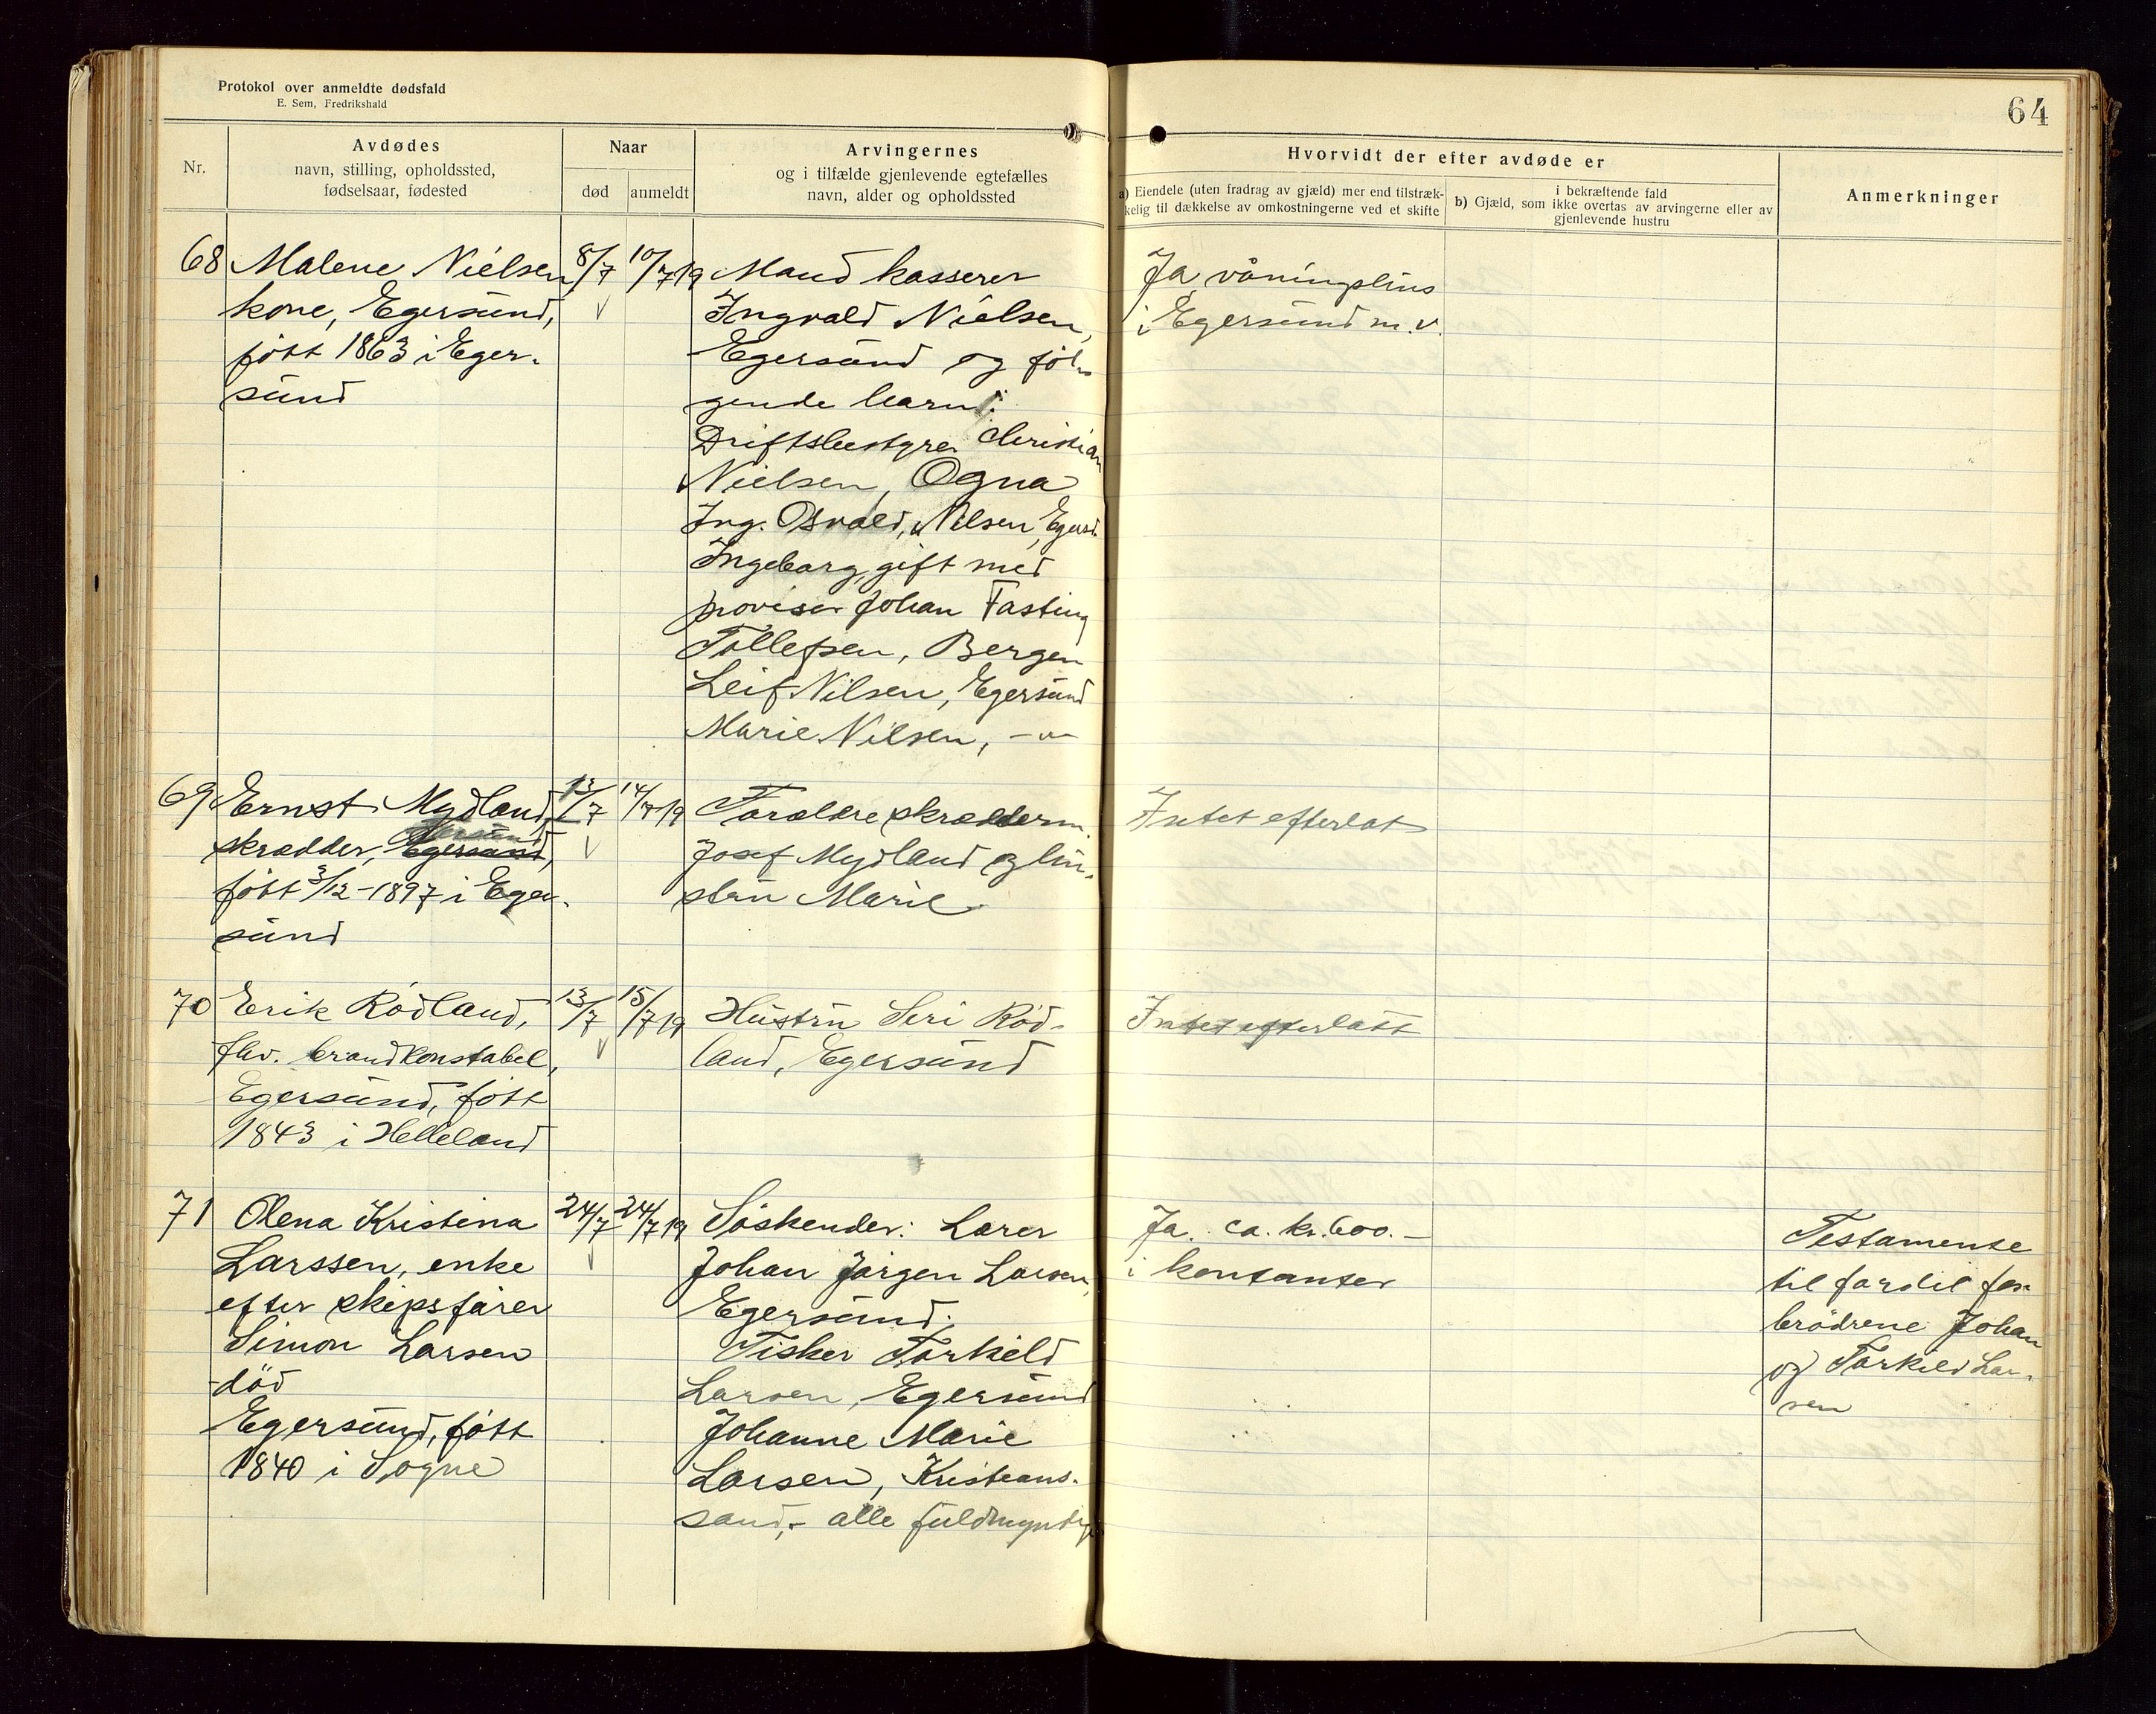 Protokol over anmeldte dødsfald
E. Sem, Fredrikshald
64
Nr.
Avdødes
navn, stilling, opholdssted,
fødselsaar, fødested
Naar
død
anmeldt
Arvingernes
og i tilfælde gjenlevende egtefælles
navn, alder og opholdssted
Hvorvidt der efter avdøde er
a) Eiendele (uten fradrag av gjæld) mer end tilstræk-
kelig til dækkelse av omkostningerne ved et skifte
i bekræftende fald
b) Gjæld, som ikke overtas av arvingerne eller av
gjenlevende hustru
Anmerkninger
68 Malene Nielsen
kone, Egersund,
född 1863 i Eger-
sund
8/7
10/7 19
Mand kasserer
Ingvald Nielsen,
Egersund og föl-
gende barn:
Driftsbestyrer Christian
Nielsen, Ogna
Ing. Osvald, Nilsen, Egersd.
Ingeborg, gift med
provisor Johan Fasting
Tollefsen, Bergen
Leif Nilsen, Egersund
Marie Nilsen, - " -
Ja, våningshus
i Egersund m.v.
69 Ernst Mydland,
skrædder, Egersund,
född 3/12-1897 i Eger-
sund
13/7
14/7 19
Forældre skrædderm.
Josef Mydland og hu-
stru Marie
Intet efterlat
70 Erik Rödland,
fhv. brandkonstabel,
Egersund, född
1843 i Helleland
13/7
15/7 19
Hustru Seri Röd-
land, Egersund
Intet efterlatt
71 Olena Kristina
Larssen, enke
efter skipsförer
Simon Larsen
död
Egersund, född
1840 i Sogne
24/7
24/7 19
Söskender:
Johan Jörgen Larsen,
Egersund,
Fisker Torkild
Larsen, Egersund
Johanne Marie
Larsen, Kristians-
sand,- alle fuldmyndige
Ja. ca. kr. 600.-
i kontanter
Testamente
til fordel for
brödrene Johan
og Torkild Lar-
sen